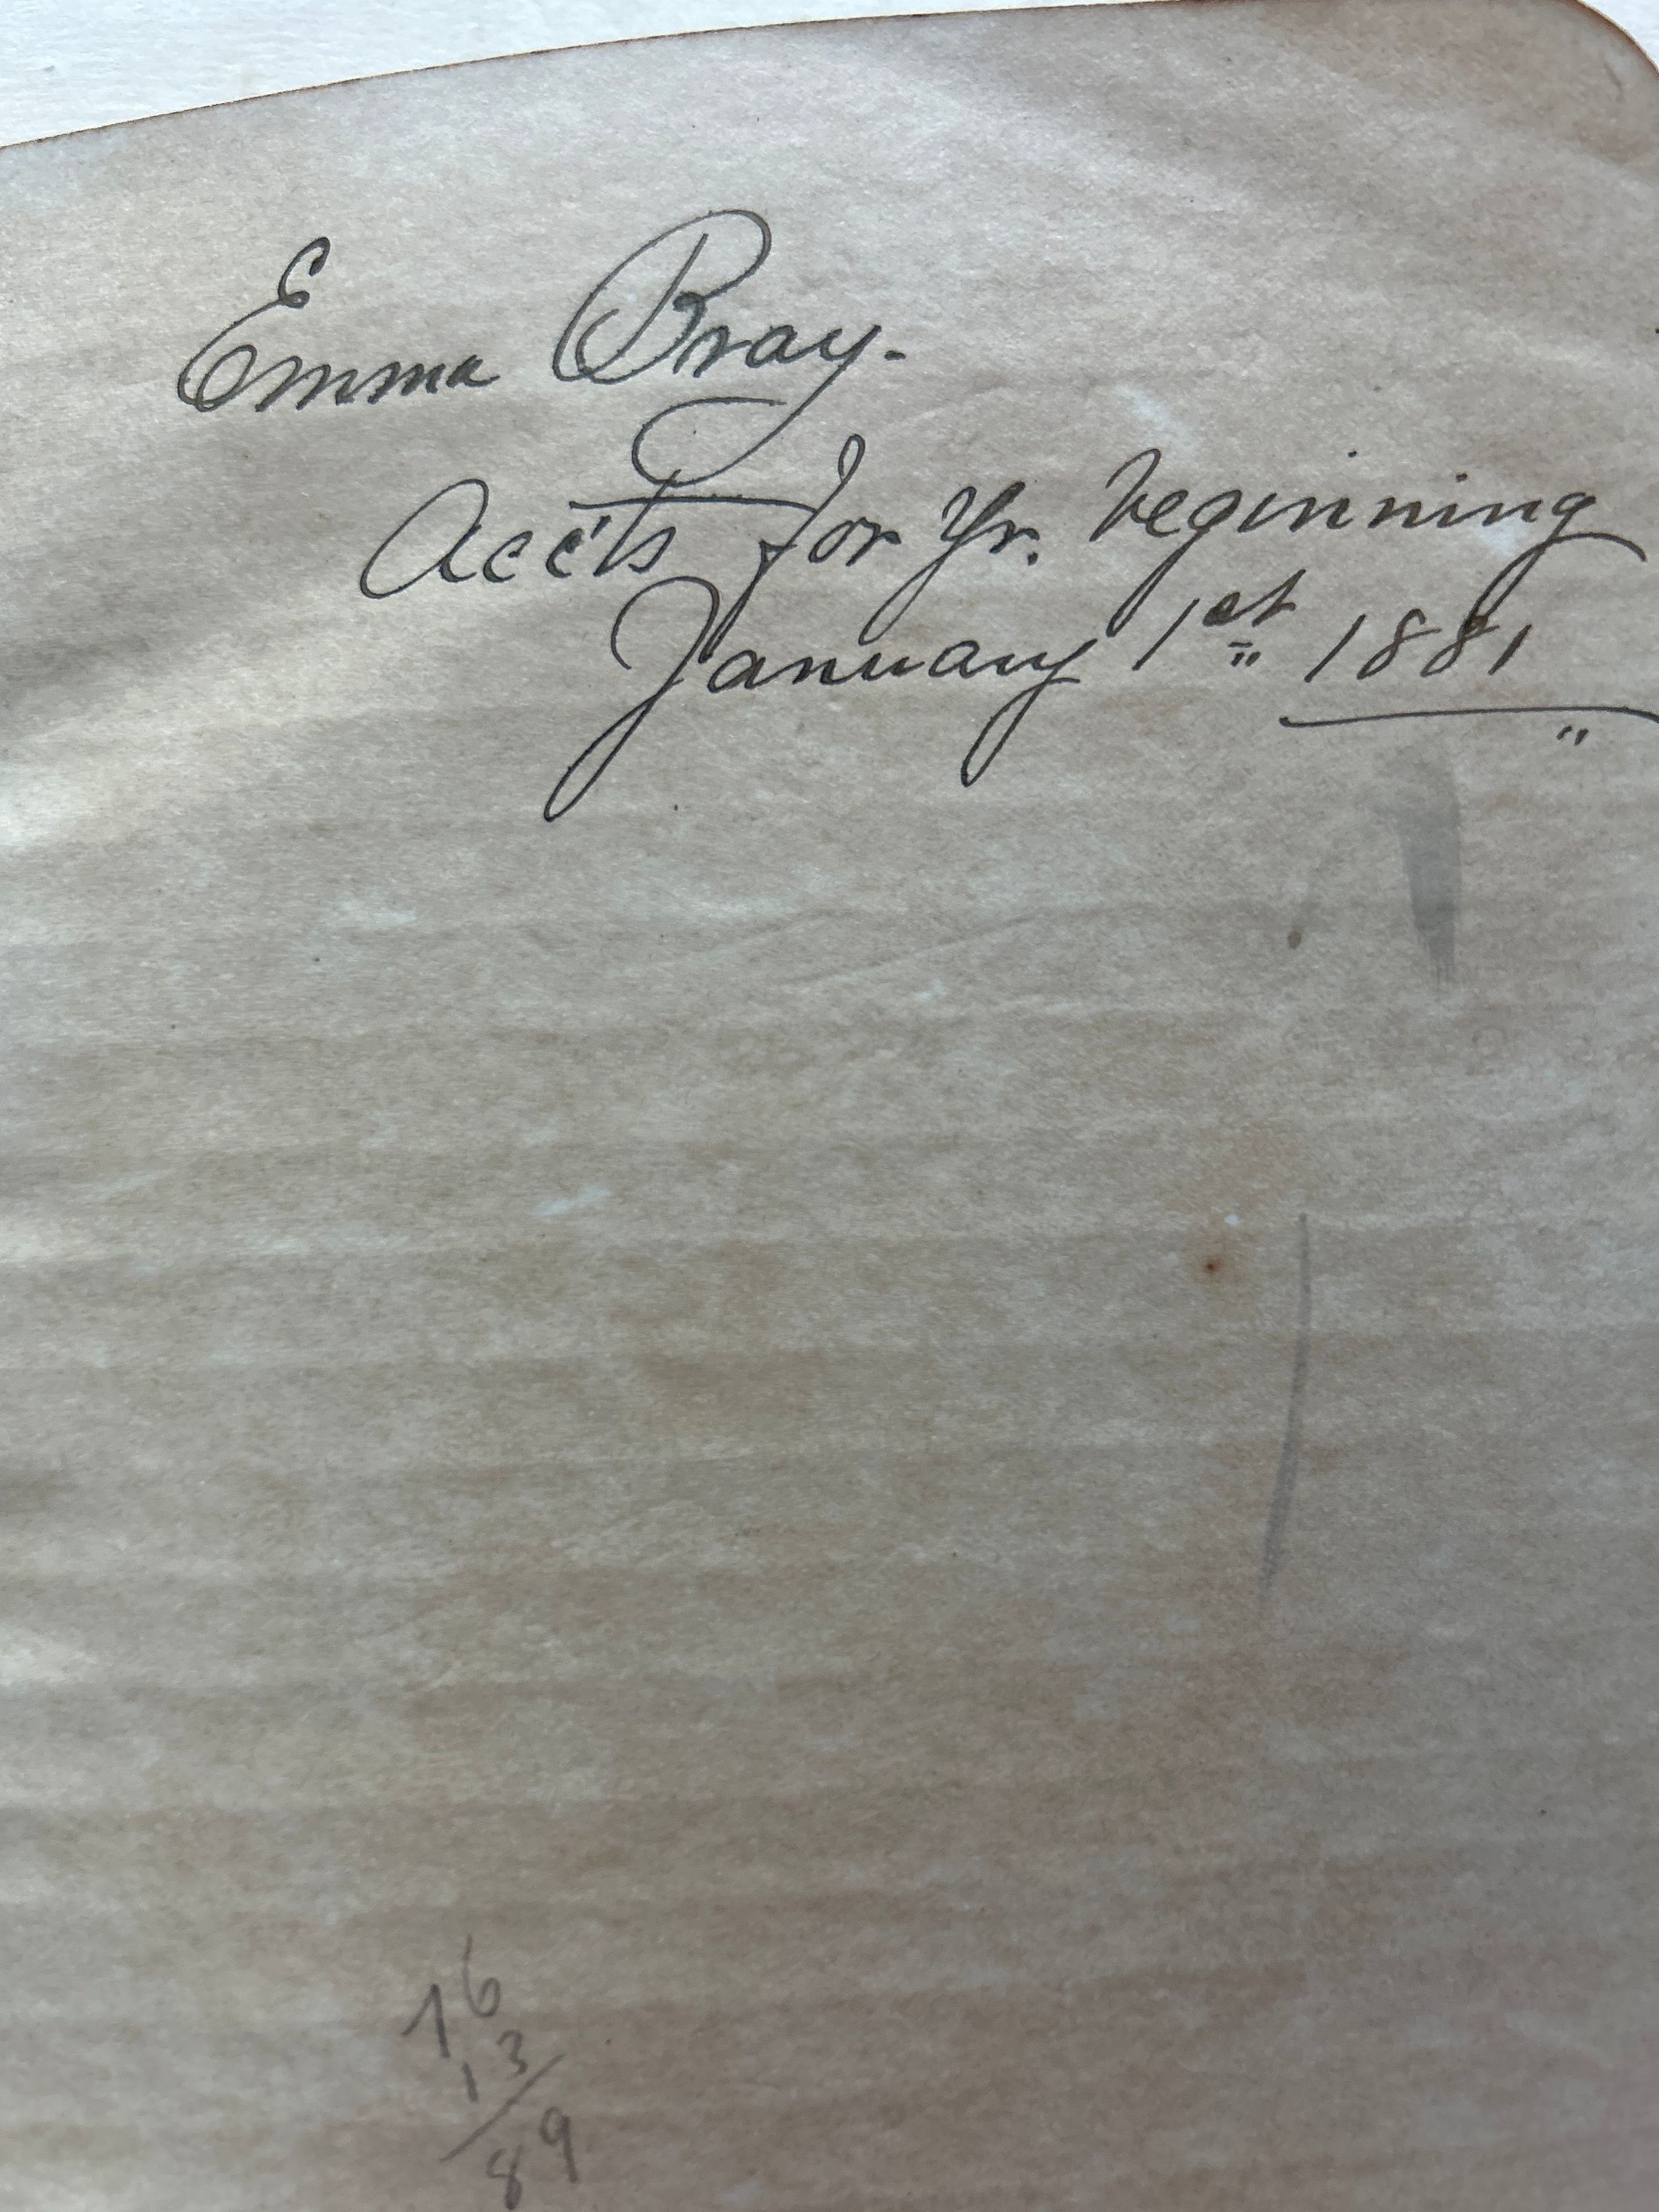 Emma Bray.
Acc'ts for Yr. beginning
January 1st 1881
76
13
89